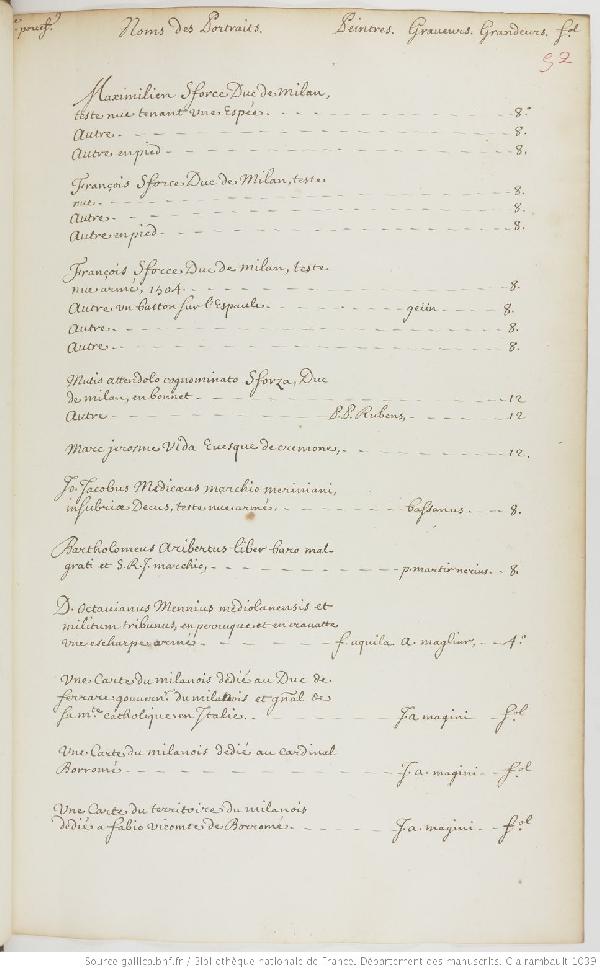 Noms des Portraits. Peintres. Graveurs. Grandeurs. fol
92
Maximilien Sforce Duc de Milan,
teste nue tenant vne Espée. 8.°
Autre. 8.
Autre en pied 8.
François Sforce Duc de Milan, teste
nue. 8.
Autre. 8.
Autre en pied 8.
François Sforce Duc de Milan, teste
nue armé, 1504. 8.
Autre vn baston sur l'Espaule 8.
Autre. 8.
Autre. 8.
Mutis attendolo cognominato Sforza, Duc
de milan, en bonnet 12
Autre P. P. Rubens, 12
Marc jerosme Vida Euesque de cremone, 12.
Jo. Jacobus Medicæus marchio meriniani,
insubriæ Decus, teste nue armé bassanus 8.
Bartholomeus Aribertus liber baro mal-
grati et S. R. J. marchio, p. martir nerius. 8.
D. Octauianus Mennius mediolanensis et
militum tribunus, en perruque et en crauatte
vne escharpe armé f. aquila a. magliar, 4.°
Vne Carte du milanois dedié au Duc de
ferrare gouuern.r du milanois et gñal de
sa m.té catholique en Italie J. a. magini fol
Vne Carte du milanois dedié au cardinal
Borromé J. a. magini fol
Vne Carte du territoire du milanois
dedié a fabio vicomte de Borromé. J. a. magini fol
Source gallica.bnf.fr / Bibliothèque nationale de France. Département des manuscrits. Clairambault 1039